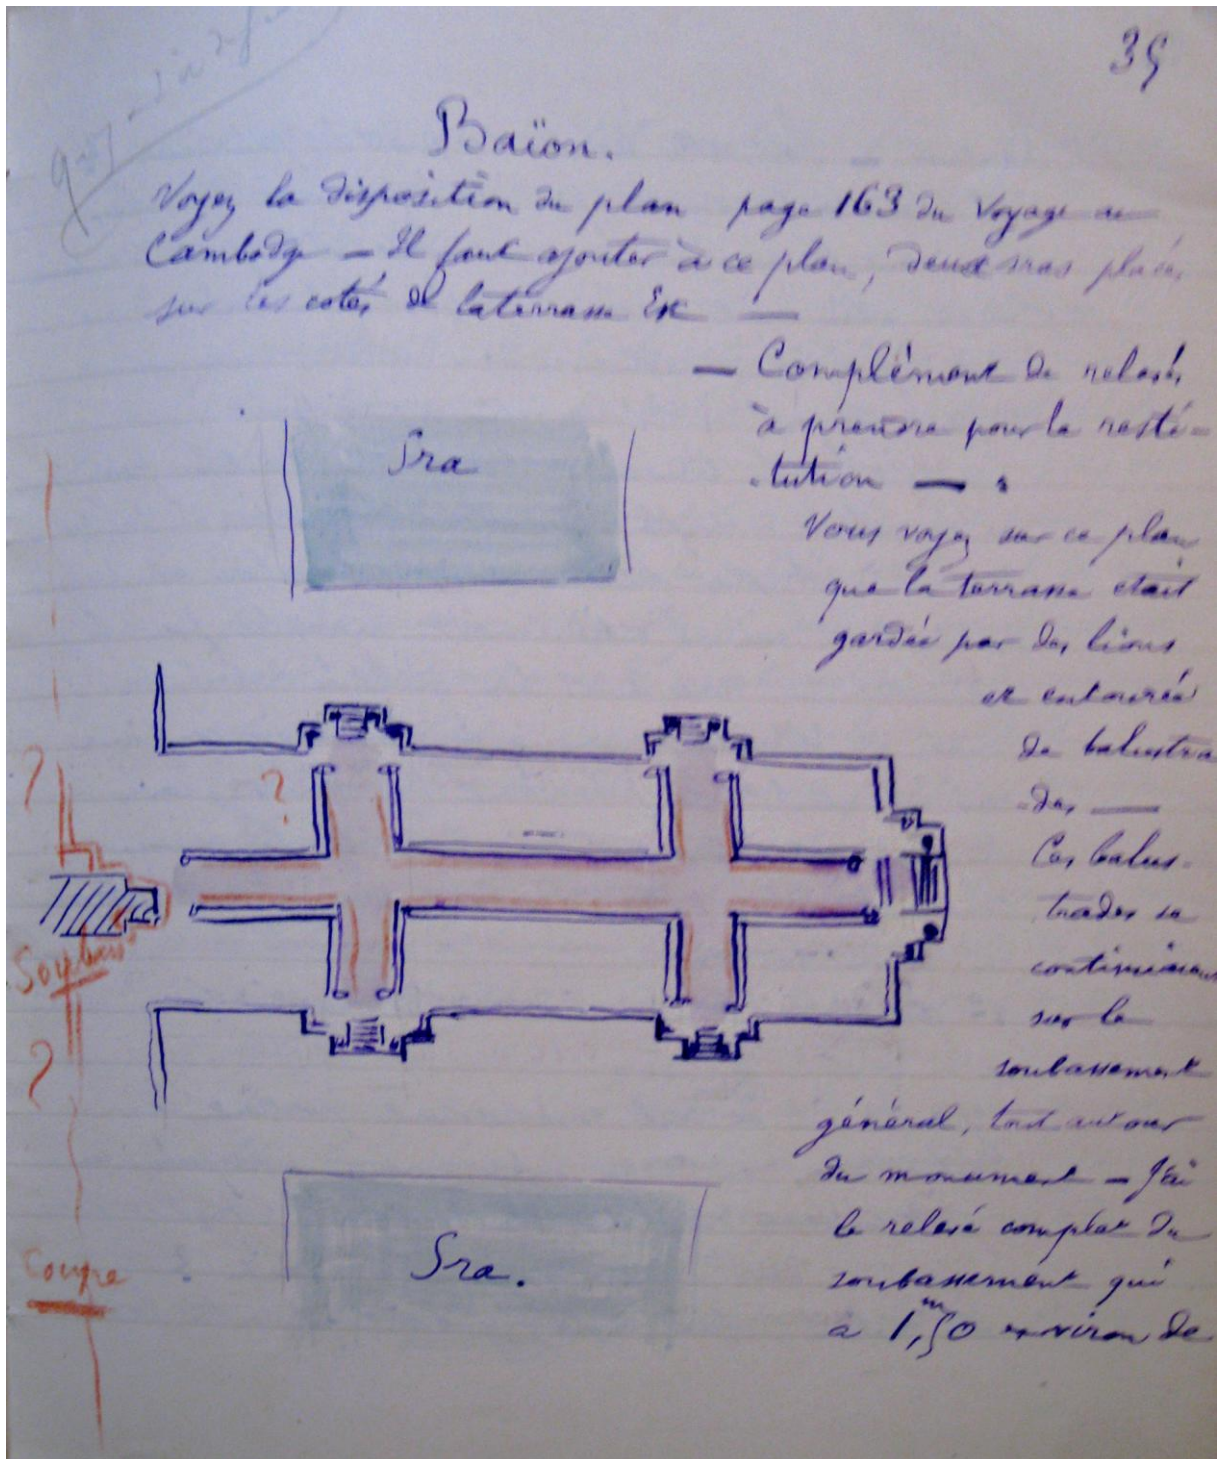 35
Baïon.
Voyez la disposition du plan page 163 du Voyage au
Cambodge — Il faut ajouter à ce plan, deux sras placés
sur les cotés de la terrasse Est —
— Complément de relevés
à prendre pour la resti-
tution —
Sra
Vous voyez sur ce plan
que la terrasse était
gardée par des lions
et entourée
de balustra
-des —
Ces balus-
trades se
continuaient
sur le
soubassement
général, tout autour
du monument — J'ai
le relevé complet du
soubassement qui
a 1,50 m environ de
?
?
Soubas
?
Coupe
Sra.